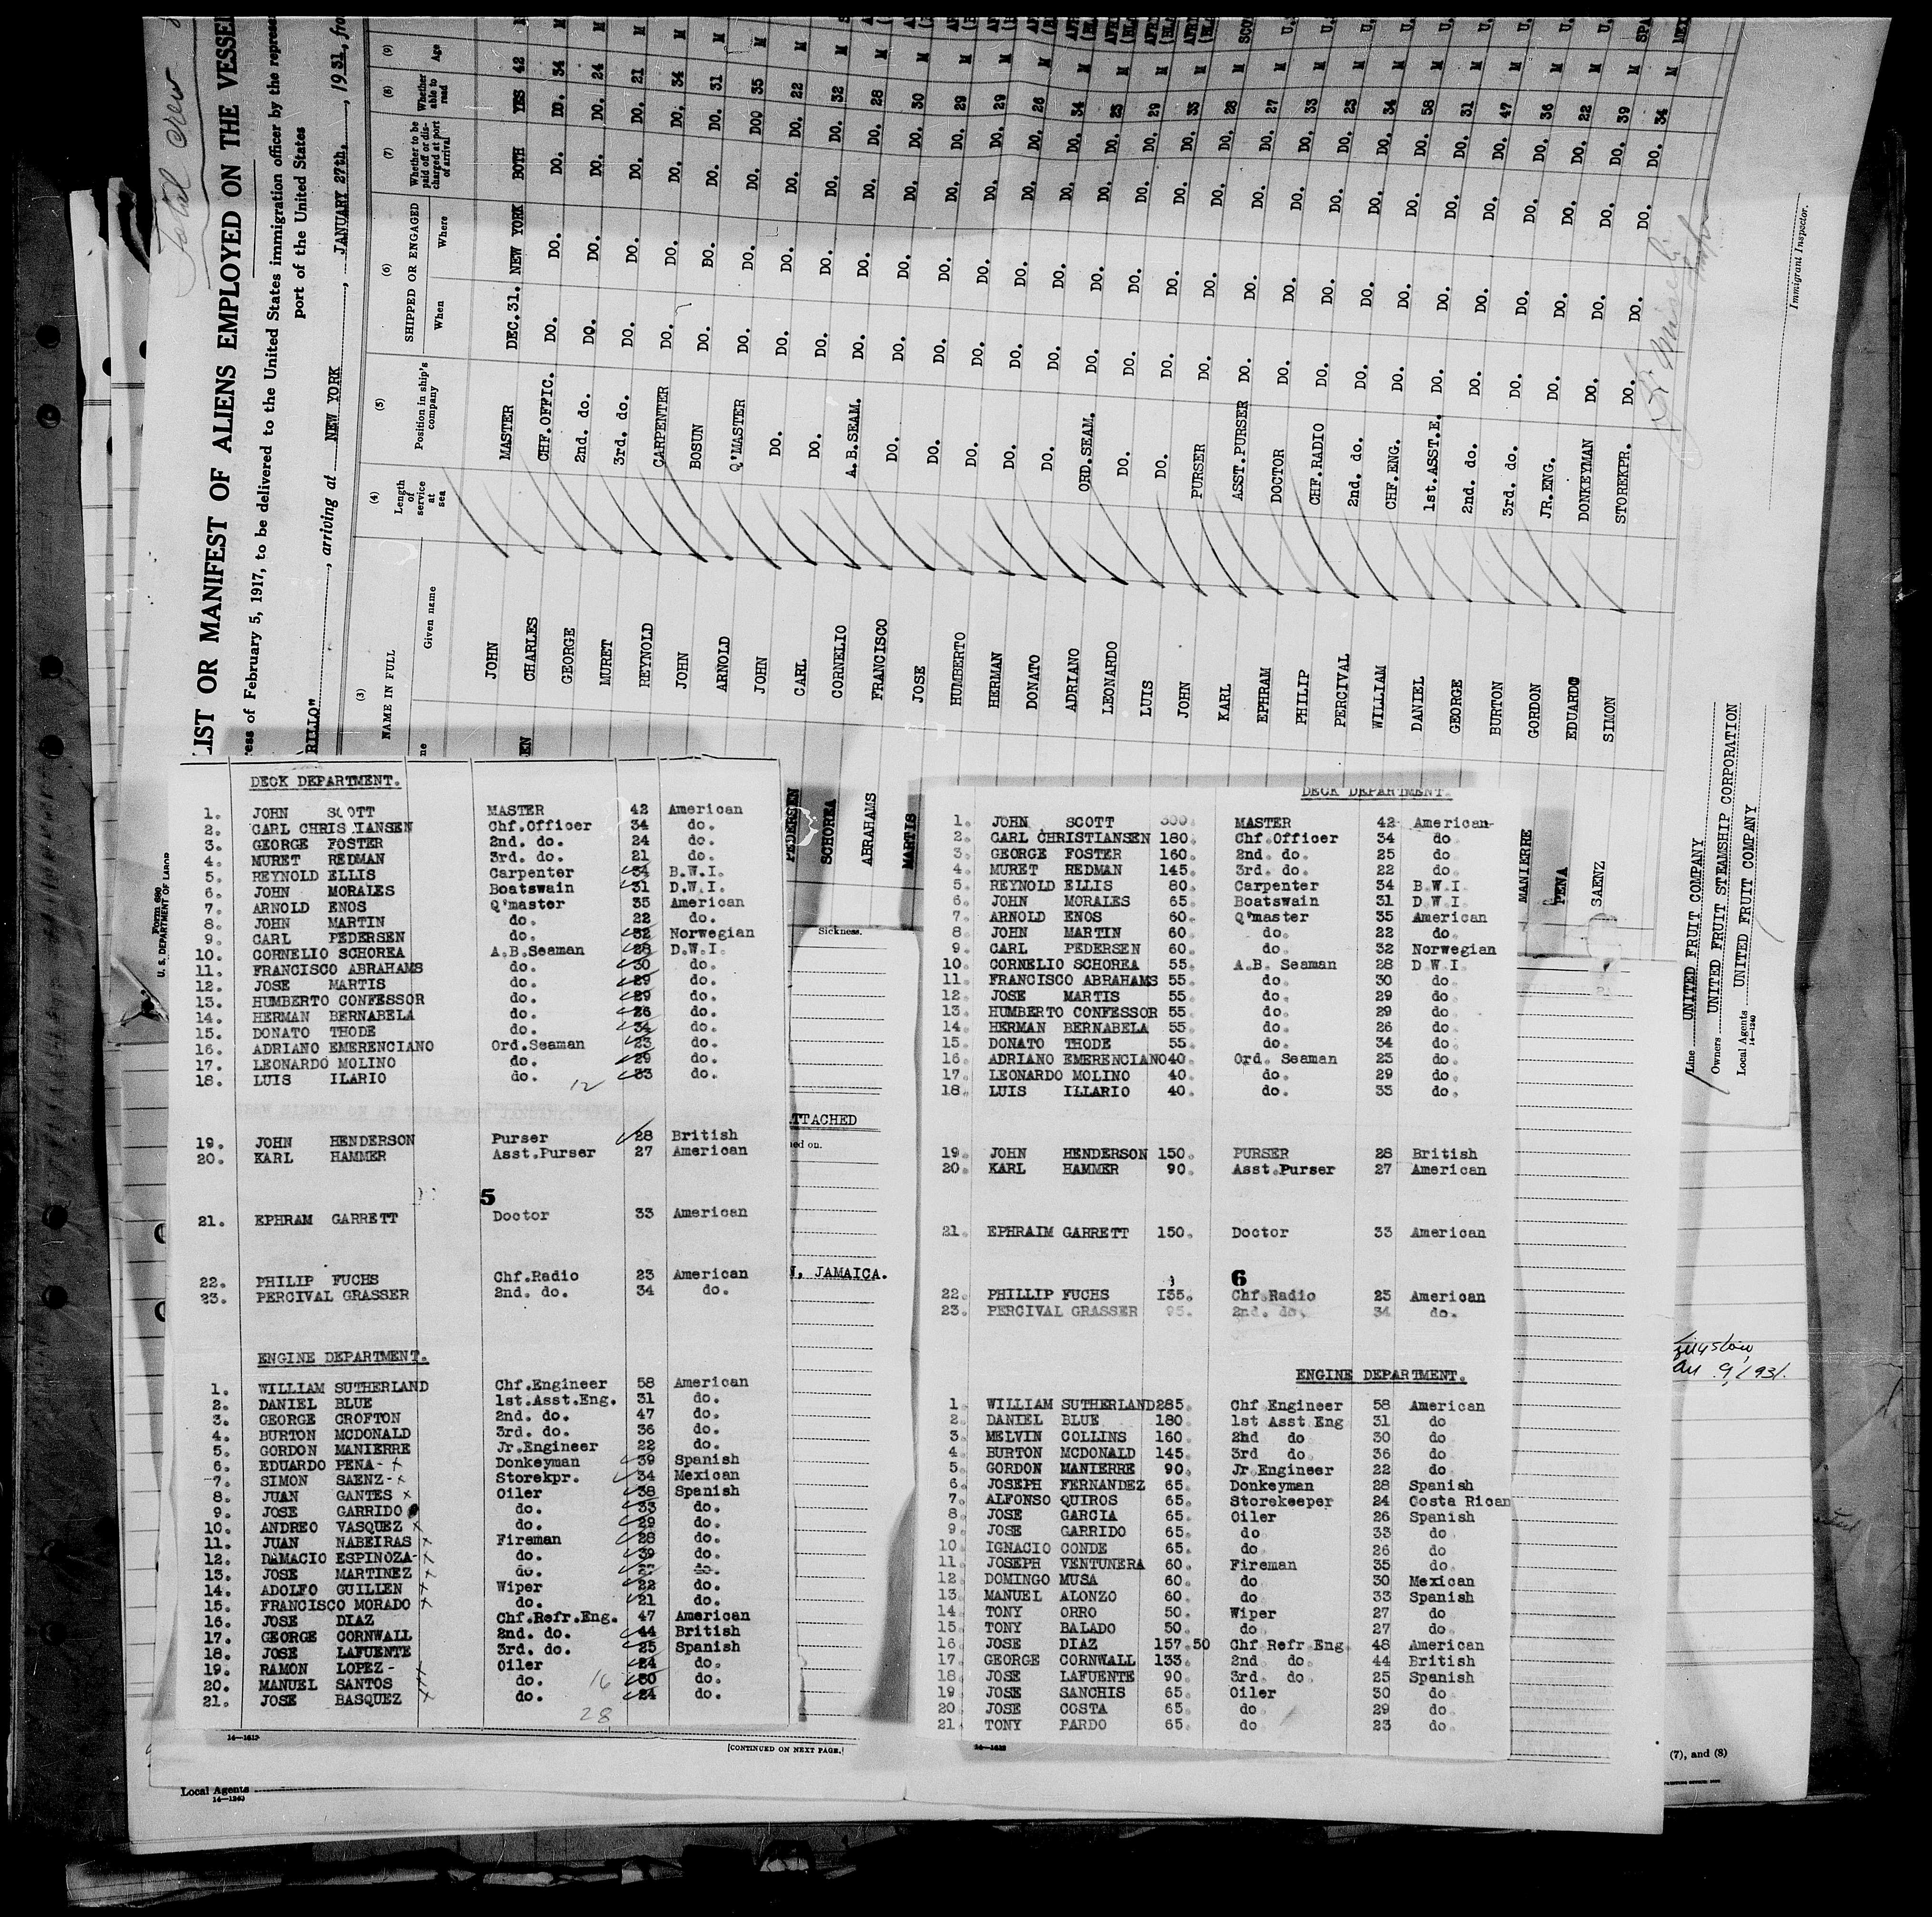 Total crew
LIST OR MANIFEST OF ALIENS EMPLOYED ON THE VESSEL
ress of February 5, 1917, to be delivered to the United States immigration officer by the represe
port of the United States
RILLO", arriving at NEW YORK, JANUARY 27th., 1931, fro
(3) (4) (5) (6) (7) (8) (9)
NAME IN FULL
Given name
Length of service at sea
Position in ship's company
SHIPPED OR ENGAGED
When Where
Whether to be paid off or discharged at port of arrival
Whether able to read
Age
JOHN MASTER DEC.31. NEW YORK BOTH YES 42
CHARLES CHF.OFFIC. DO. DO. DO. DO. 34 M
GEORGE 2nd. do. DO. DO. DO. DO. 24 M
MURET 3rd. do. DO. DO. DO. DO. 21 M
REYNOLD CARPENTER DO. DO. DO. DO. 34 M
JOHN BOSUN DO. DO. DO. DO. 31 M
ARNOLD Q'MASTER DO. DO. DO. DOO 35 M
JOHN DO. DO. DO. DO. DO. 22 M
CARL DO. DO. DO. DO. DO. 32 M
CORNELIO A.B.SEAM. DO. DO. DO. DO. 28 M
FRANCISCO DO. DO. DO. DO. DO. 30 M
JOSE DO. DO. DO. DO. DO. 29 M
HUMBERTO DO. DO. DO. DO. DO. 29 M
HERMAN DO. DO. DO. DO. DO. 26 M
DONATO DO. DO. DO. DO. DO. 34 M
ADRIANO ORD.SEAM. DO. DO. DO. DO. 23 M
LEONARDO DO. DO. DO. DO. DO. 29 M
LUIS DO. DO. DO. DO. DO. 33 M
JOHN PURSER DO. DO. DO. DO. 28 M
KARL ASST.PURSER DO. DO. DO. DO. 27 M
EPHRAM DOCTOR DO. DO. DO. DO. 33 M
PHILIP CHF.RADIO DO. DO. DO. DO. 23 M
PERCIVAL 2nd. do. DO. DO. DO. DO. 34 M
WILLIAM CHF.ENG. DO. DO. DO. DO. 58 M
DANIEL 1st.ASST.E. DO. DO. DO. DO. 31 M
GEORGE 2nd. do. DO. DO. DO. DO. 47 M
BURTON 3rd. do. DO. DO. DO. DO. 36 M
GORDON JR.ENG. DO. DO. DO. DO. 22 M
EDUARDO DONKEYMAN DO. DO. DO. DO. 39 M
SIMON STOREKPR. DO. DO. DO. DO. 34 M
Immigrant Inspector.
PEDERSEN
SCHOREA
ABRAHAMS
MARTIS
MANIERRE
PENA
SAENZ
Form 680
U. S. DEPARTMENT OF LABOR
Line UNITED FRUIT COMPANY
Owners UNITED FRUIT STEAMSHIP CORPORATION
Local Agents UNITED FRUIT COMPANY
14-1240
DECK DEPARTMENT.
1. JOHN SCOTT MASTER 42 American
2. CARL CHRIS IANSEN Chf.Officer 34 do.
3. GEORGE FOSTER 2nd. do. 24 do.
4. MURET REDMAN 3rd. do. 21 do.
5. REYNOLD ELLIS Carpenter 34 B.W.I.
6. JOHN MORALES Boatswain 31 D.W.I.
7. ARNOLD ENOS Q'master 35 American
8. JOHN MARTIN do. 22 do.
9. CARL PEDERSEN do. 32 Norwegian
10. CORNELIO SCHOREA A.B.Seaman 28 D.W.I.
11. FRANCISCO ABRAHAMS do. 30 do.
12. JOSE MARTIS do. 29 do.
13. HUMBERTO CONFESSOR do. 29 do.
14. HERMAN BERNABELA do. 26 do.
15. DONATO THODE do. 34 do.
16. ADRIANO EMERENCIANO Ord.Seaman 23 do.
17. LEONARDO MOLINO do. 29 do.
18. LUIS ILARIO do. 33 do.
12
19. JOHN HENDERSON Purser 28 British
20. KARL HAMMER Asst.Purser 27 American
5
21. EPHRAM GARRETT Doctor 33 American
22. PHILIP FUCHS Chf.Radio 23 American
23. PERCIVAL GRASSER 2nd. do. 34 do.
ENGINE DEPARTMENT.
1. WILLIAM SUTHERLAND Chf.Engineer 58 American
2. DANIEL BLUE 1st.Asst.Eng. 31 do.
3. GEORGE CROFTON 2nd. do. 47 do.
4. BURTON MCDONALD 3rd. do. 36 do.
5. GORDON MANIERRE Jr.Engineer 22 do.
6. EDUARDO PENA- x Donkeyman 39 Spanish
7. SIMON SAENZ- x Storekpr. 34 Mexican
8. JUAN GANTES x Oiler 38 Spanish
9. JOSE GARRIDO do. 33 do.
10. ANDREO VASQUEZ x do. 29 do.
11. JUAN NABEIRAS x Fireman 28 do.
12. DAMACIO ESPINOZA- x do. 39 do.
13. JOSE MARTINEZ x do. do.
14. ADOLFO GUILLEN x Wiper 22 do.
15. FRANCISCO MORADO x do. 21 do.
16. JOSE DIAZ Chf.Refr.Eng. 47 American
17. GEORGE CORNWALL 2nd. do. 44 British
18. JOSE LAFUENTE 3rd. do. 25 Spanish
19. RAMON LOPEZ- x Oiler 24 do.
20. MANUEL SANTOS x do. 30 do.
21. JOSE BASQUEZ x do. 24 do.
16
28
14-1613
[CONTINUED ON NEXT PAGE.]
Local Agents
14-1240
Sickness.
TTACHED
ned on.
N, JAMAICA.
DECK DEPARTMENT.
1. JOHN SCOTT 300. MASTER 42 American
2. CARL CHRISTIANSEN 180. Chf.Officer 34 do
3. GEORGE FOSTER 160. 2nd. do. 25 do
4. MURET REDMAN 145. 3rd. do. 22 do
5. REYNOLD ELLIS 80. Carpenter 34 B.W.I.
6. JOHN MORALES 65. Boatswain 31 D.W.I.
7. ARNOLD ENOS 60. Q'master 35 American
8. JOHN MARTIN 60. do. 22 do.
9. CARL PEDERSEN 60. do. 32 Norwegian
10. CORNELIO SCHOREA 55. A.B. Seaman 28 D W I.
11. FRANCISCO ABRAHAMS 55. do. 30 do.
12. JOSE MARTIS 55. do. 29 do.
13. HUMBERTO CONFESSOR 55. do. 29 do.
14. HERMAN BERNABELA 55. do. 26 do.
15. DONATO THODE 55. do. 34 do.
16. ADRIANO EMERENCIANO 40. Ord. Seaman 23 do.
17. LEONARDO MOLINO 40. do. 29 do.
18. LUIS ILLARIO 40. do. 33 do.
19. JOHN HENDERSON 150. PURSER 28 British
20. KARL HAMMER 90. Asst.Purser 27 American
21. EPHRAIM GARRETT 150. Doctor 33 American
6
22. PHILLIP FUCHS 135. Chf.Radio 23 American
23. PERCIVAL GRASSER 95. 2nd. do. 34 do.
ENGINE DEPARTMENT.
1. WILLIAM SUTHERLAND 285. Chf Engineer 58 American
2. DANIEL BLUE 180. 1st Asst Eng 31 do
3. MELVIN COLLINS 160. 2nd do 30 do
4. BURTON MCDONALD 145. 3rd do 36 do
5. GORDON MANIERRE 90. Jr Engineer 22 do
6. JOSEPH FERNANDEZ 65. Donkeyman 28 Spanish
7. ALFONSO QUIROS 65. Storekeeper 24 Costa Rican
8. JOSE GARCIA 65. Oiler 26 Spanish
9. JOSE GARRIDO 65. do 33 do
10. IGNACIO CONDE 65. do 26 do
11. JOSEPH VENTUNERA 60. Fireman 35 do
12. DOMINGO MUSA 60. do 30 Mexican
13. MANUEL ALONZO 60. do 33 Spanish
14. TONY ORRO 50. Wiper 27 do
15. TONY BALADO 50. do 27 do
16. JOSE DIAZ 157.50 Chf Refr Eng. 48 American
17. GEORGE CORNWALL 133. 2nd do. 44 British
18. JOSE LAFUENTE 90. 3rd do 25 Spanish
19. JOSE SANCHIS 65. Oiler 30 do
20. JOSE COSTA 65. do 29 do
21. TONY PARDO 65. do 23 do
14-1613
(7), and (8)